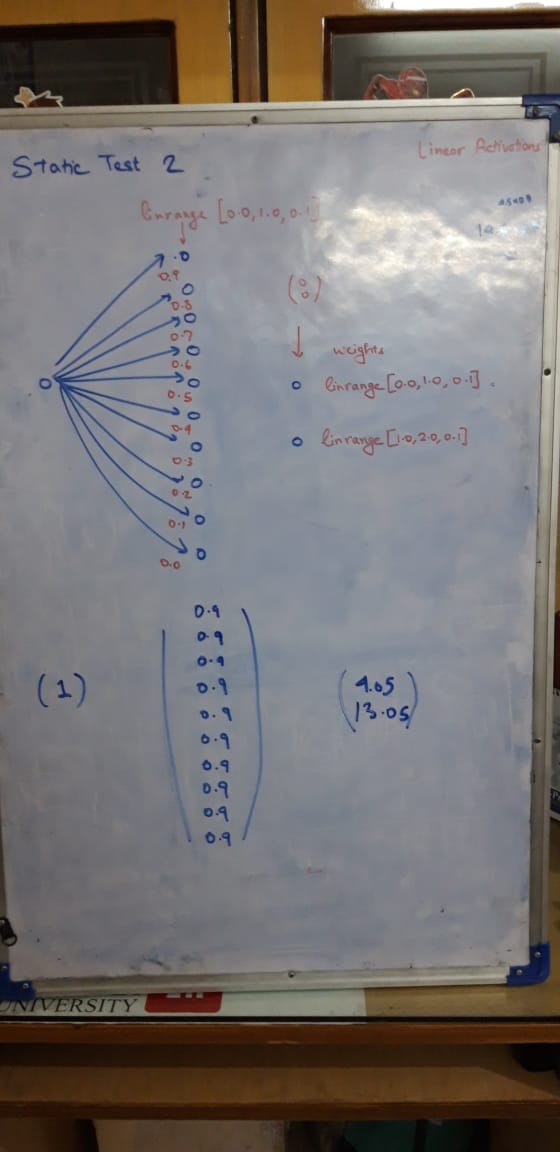 Static Test 2
Linear Activations
linrange [0.0,1.0,0.1]
0.9
0.8
0.7
0.6
0.5
0.4
0.3
0.2
0.1
0.0
(0
0)
weights
linrange [0.0,1.0,0.1].
linrange [1.0,2.0,0.1]
(1)
0.9
0.9
0.9
0.9
0.9
0.9
0.9
0.9
0.9
0.9
(4.05
13.05)
UNIVERSITY